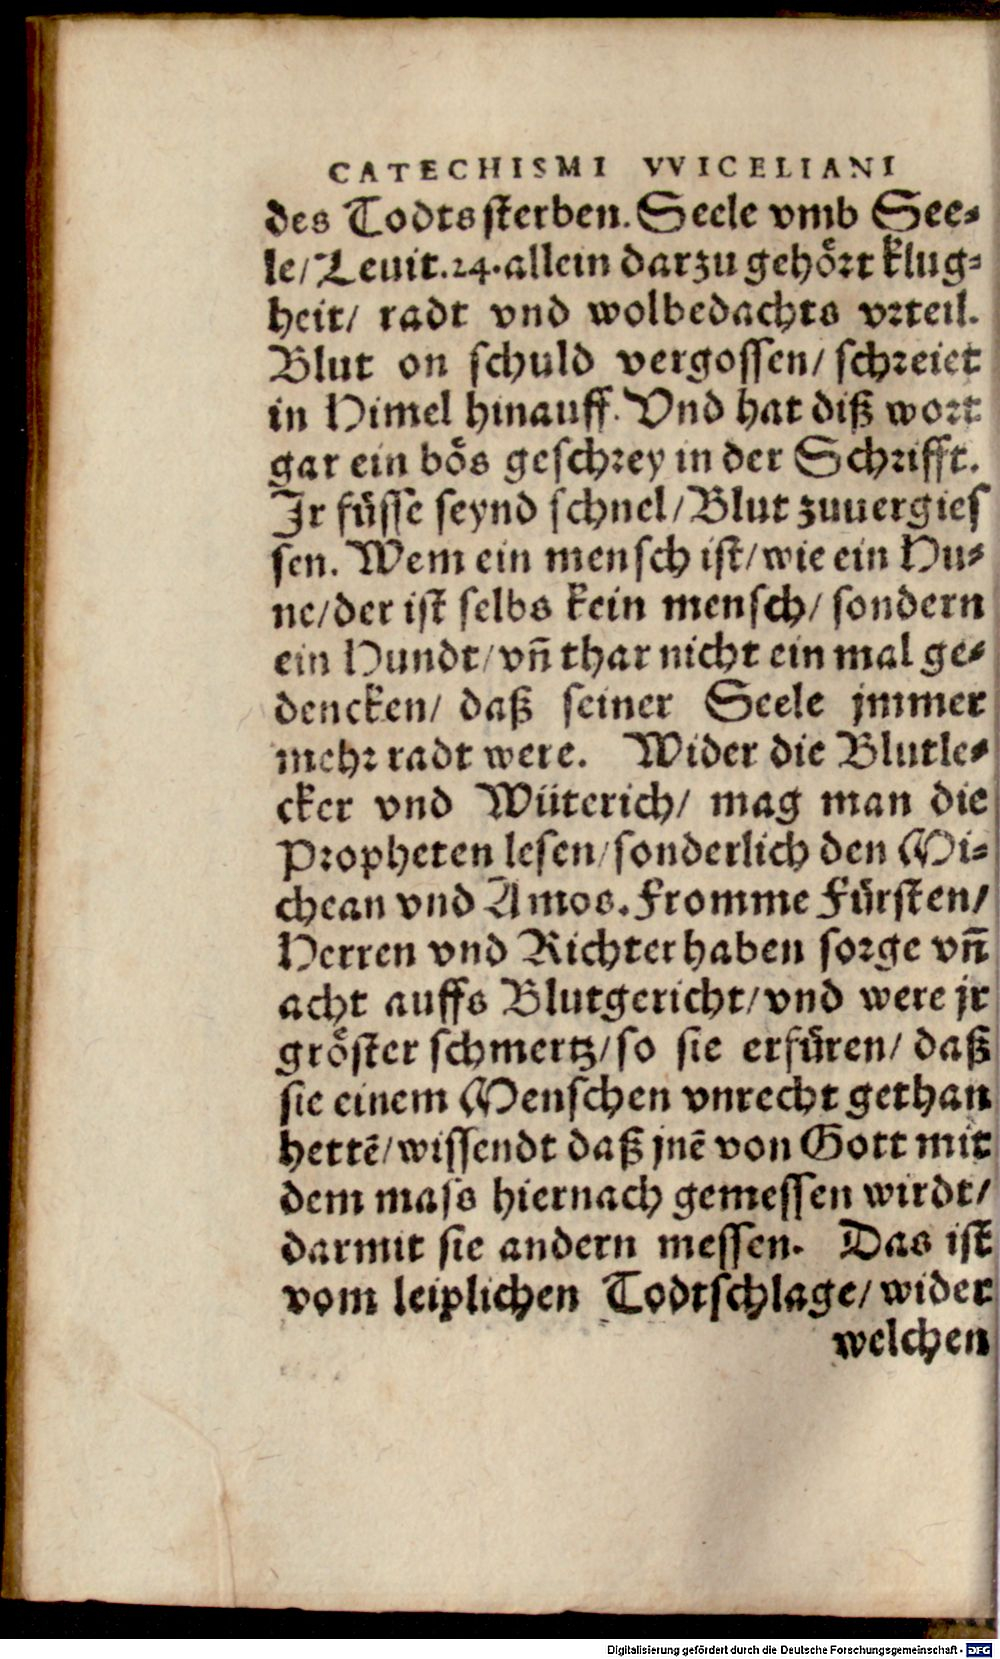 CATECHISMI VVICELIANI
des Todts sterben. Seele vmb See-
le/ Leuit. 24. allein darzu gehört klug-
heit/ radt vnd wolbedachts vrteil.
Blut on schuld vergossen/ schreiet
in Himel hinauff. Vnd hat diß wort
gar ein bös geschrey in der Schrifft.
Jr füsse seynd schnel/ Blut zuuergies
sen. Wem ein mensch ist/ wie ein Hu-
ne/ der ist selbs kein mensch/ sondern
ein Hundt/ vñ thar nicht ein mal ge-
dencken/ daß seiner Seele jmmer
mehr radt were. Wider die Blutle-
cker vnd Wüterich/ mag man die
Propheten lesen/ sonderlich den Mi-
chean vnd Amos. Fromme Fürsten/
Herren vnd Richter haben sorge vñ
acht auffs Blutgericht/ vnd were jr
gröster schmertz/ so sie erfüren/ daß
sie einem Menschen vnrecht gethan
hettē/ wissendt daß jnē von Gott mit
dem mass hiernach gemessen wirdt/
darmit sie andern messen. Das ist
vom leiplichen Todtschlage/ wider
welchen
Digitalisierung gefördert durch die Deutsche Forschungsgemeinschaft - DFG